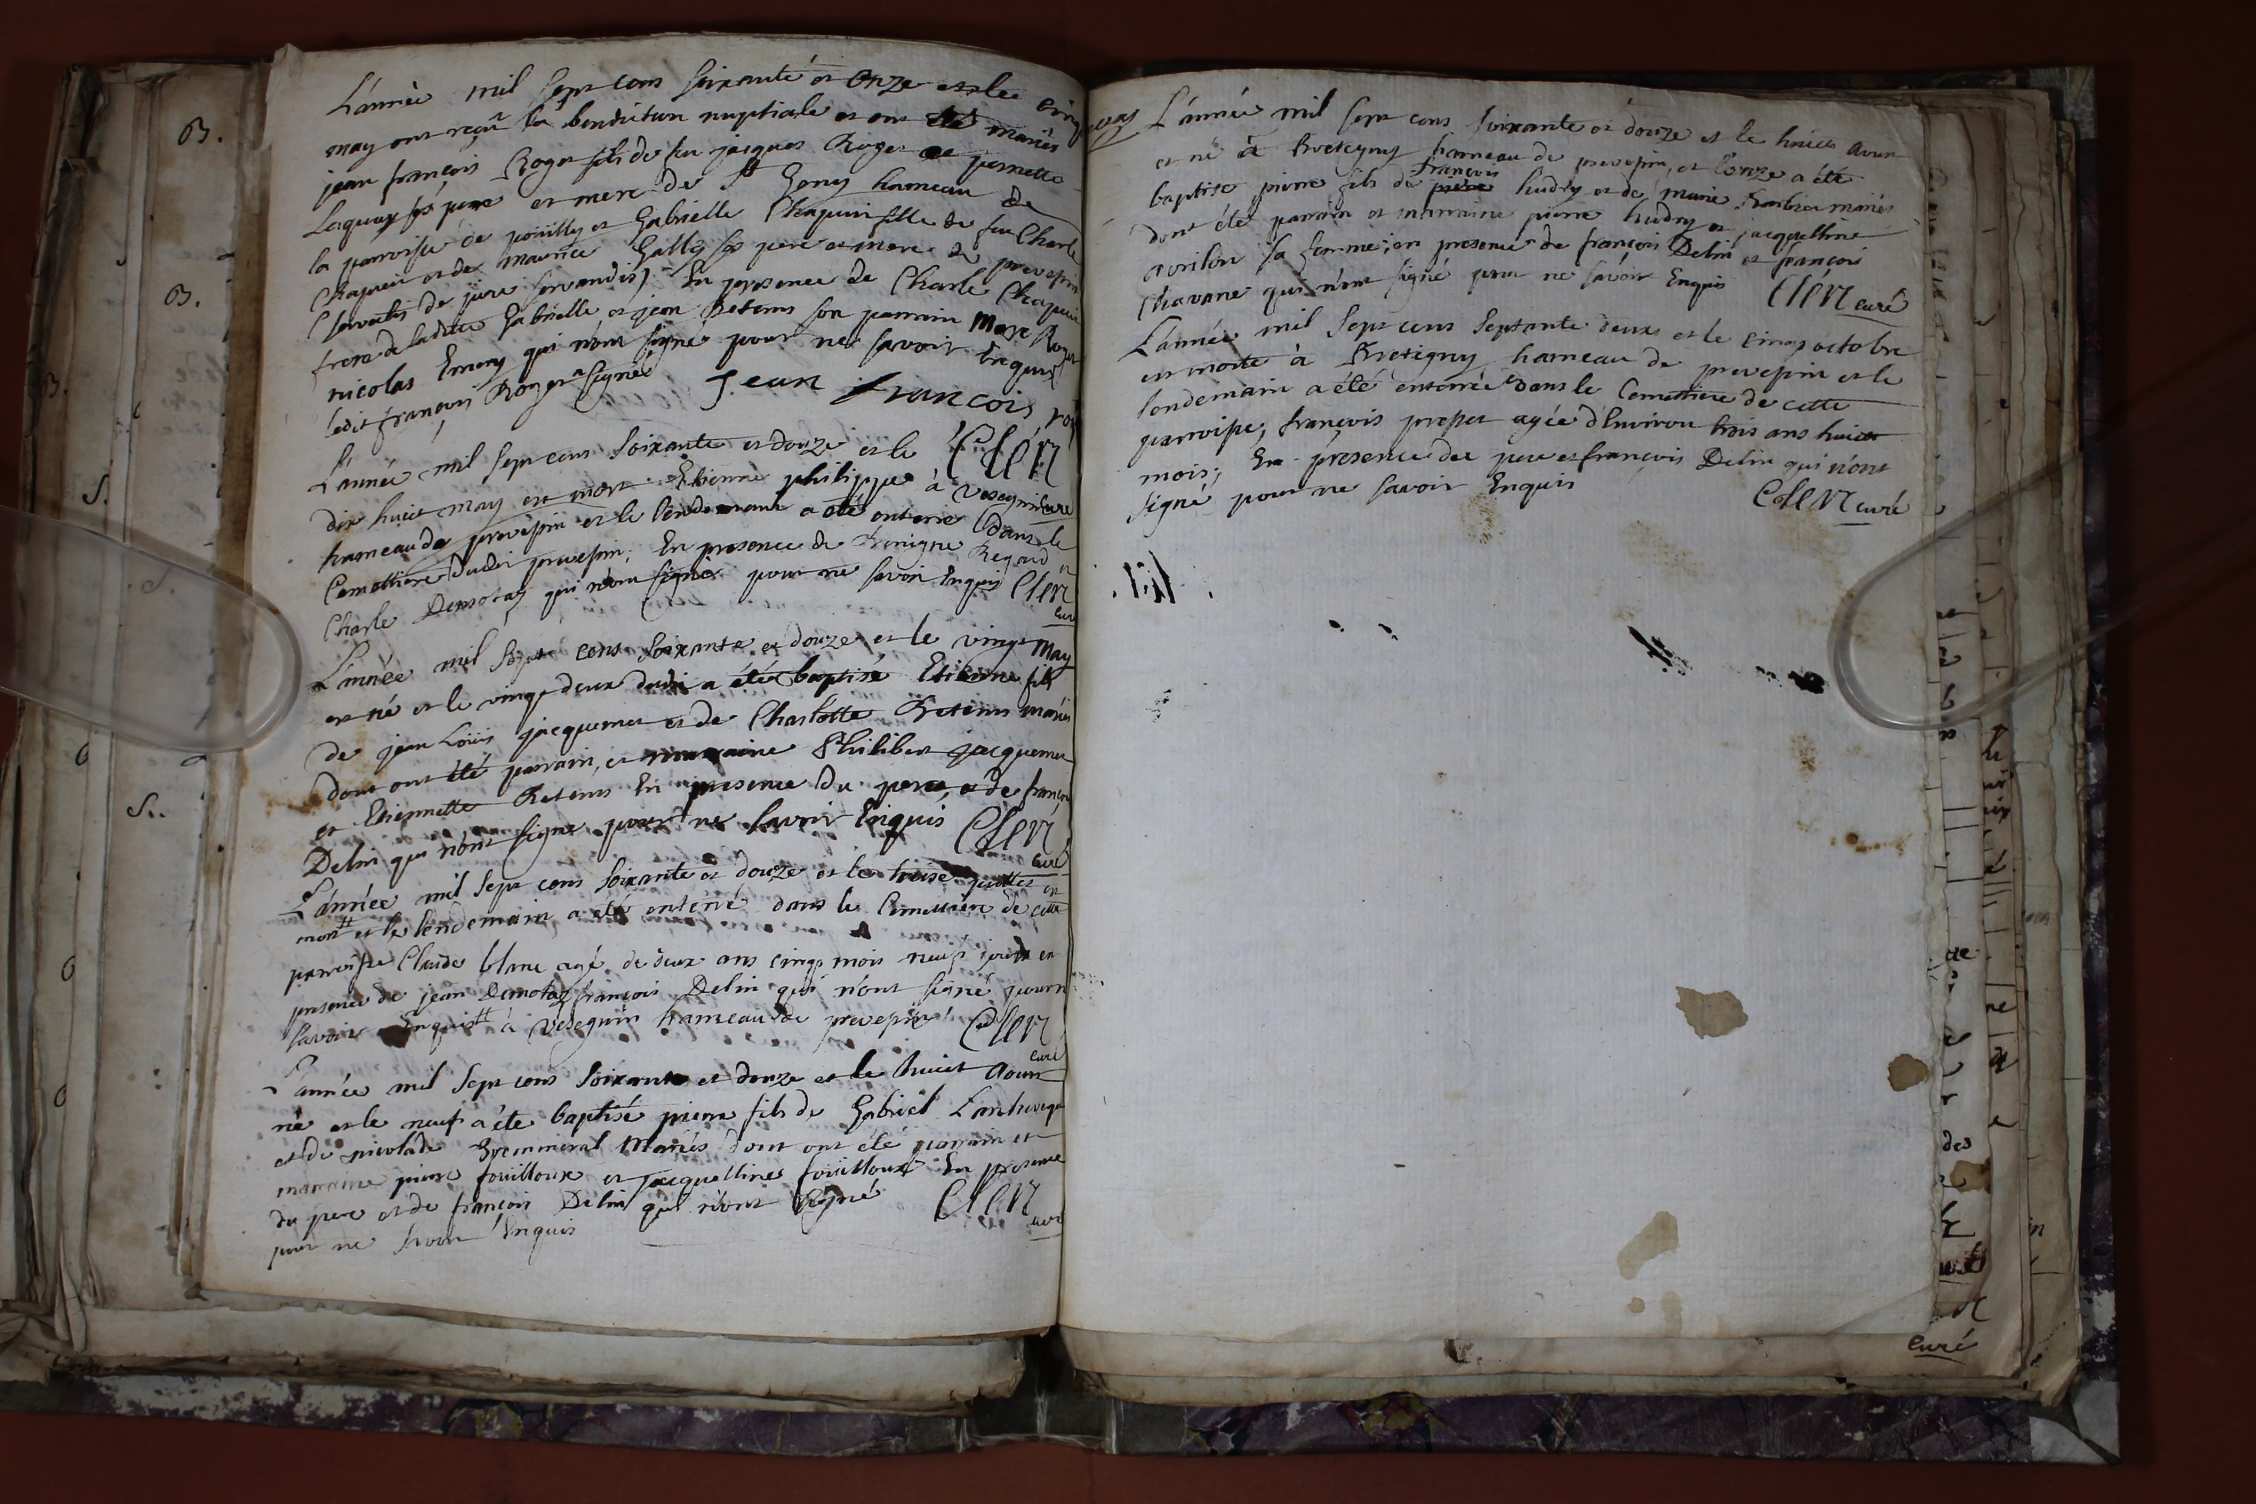 L'année mil sept cens soixante et onze et le cinq
may ont reçu la benediction nuptiale et ont été mariés
jean françois Roget fils de feu jacques Roget et pernette
Laquay ses pere et mere de St Geny hameau de
la parroisse de pouilly et Gabrielle Chapuis fille de feu Charle
Chapuis et de maurice Gallay ses pere et mere de prevepin
(servatis de jure servandis) En presence de Charle Chapuis
frere de ladite Gabrielle et jean Betems son parrain Marc Roget
nicolas Emery qui n'ont signé pour ne savoir Enquis
ledit françois Roget a signé Jean François
Clen curé
L'année mil sept cens soixante et douze et le
dix huict may est mort Etienne philippe à Vesegnin
hameau de prevepin et le lendemain a été enterré dans le
Cemettiere dudit prevepin; En presence de Regard et
Charle Demotaz qui n'ont signé pour ne savoir Enquis Clen
curé
L'année mil sept cens soixante et douze et le vingt May
est né et le vingt deux dudit a été baptisé Etienne fils
de jean Loüis jacquemet et de Charlotte Betems mariés
dont ont été parrain, et marraine Philibert jacquemet
et Etiennette Betems En presence du pere, et de françois
Delin qui n'ont signé pour ne savoir Enquis Clen
curé
L'année mil sept cens soixante et douze et le treise juillet est
mort # et le lendemain a été enterré dans le Cemettiere de cette
parroisse Claude blanc agé de deux ans cinq mois neuf jours en
presence de jean Demotaz françois Delin qui n'ont signé pour n
savoir Enquis # à Vesegnin hameau de prevepin Clen
curé
L'année mil sept cens soixante et douze et le huict Aoust
né et le neuf a été baptisé pierre fils de Gabriel
et de nicolade Mariés dont ont été parrain et
marraine pierre fouilloux et jacqueline fouilloux En presence
du pere et de françois Delin qui n'ont signé Clen
pour ne savoir Enquis curé
L'année mil sept cens soixante et douze et le huict Aoust
est né à Bretegny hameau de prevepin, et l'onze a été
françois
baptisé pierre fils de hudry et de marie mariés
dont été parrain et marraine pierre hudry et jacqueline
avrilon sa femme; en presence de françois Delin et françois
Chavane qui n'ont signé pour ne savoir Enquis Clen curé
L'année mil sept cens septante deux et le cinq octobre
est morte à Bretigny hameau de prevepin et le
lendemain a été enterrée dans le Cemettiere de cette
parroisse, françois agée d'Environ trois ans huict
mois; En presence du pere et françois Delin qui n'ont
signé pour ne savoir Enquis Clen curé
B.
B.
B.
S.
S.
S.
de
des
curé